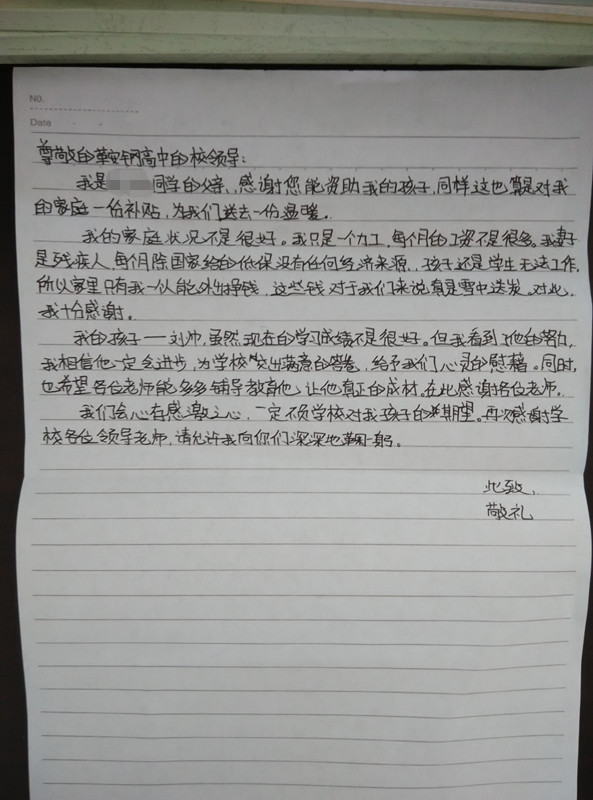 No.
Date
尊敬的鞍钢高中的校领导:
我是同学的父亲,感谢您能资助我的孩子,同样这也算是对我
的家庭一份补贴,为我们送去一份温暖。
我的家庭状况不是很好。我只是一个力工,每个月的工资不是很多。我妻子
是残疾人,每个月除国家给的低保没有任何经济来源。孩子还是学生无法工作,
所以家里只有我一人能外出挣钱,这些钱对于我们来说真是雪中送炭。对此,
我十分感谢。
我的孩子——刘帅,虽然现在的学习成绩不是很好。但我看到了他的努力,
我相信他一定会进步,为学校交出满意的答卷,给予我们心灵的慰藉。同时,
也希望各位老师能多多辅导教育他,让他真正的成材。在此感谢各位老师。
我们会心存感激之心,一定不负学校对我孩子的期望。再次感谢学
校各位领导老师,请允许我向你们深深地鞠躬。
此致,
敬礼